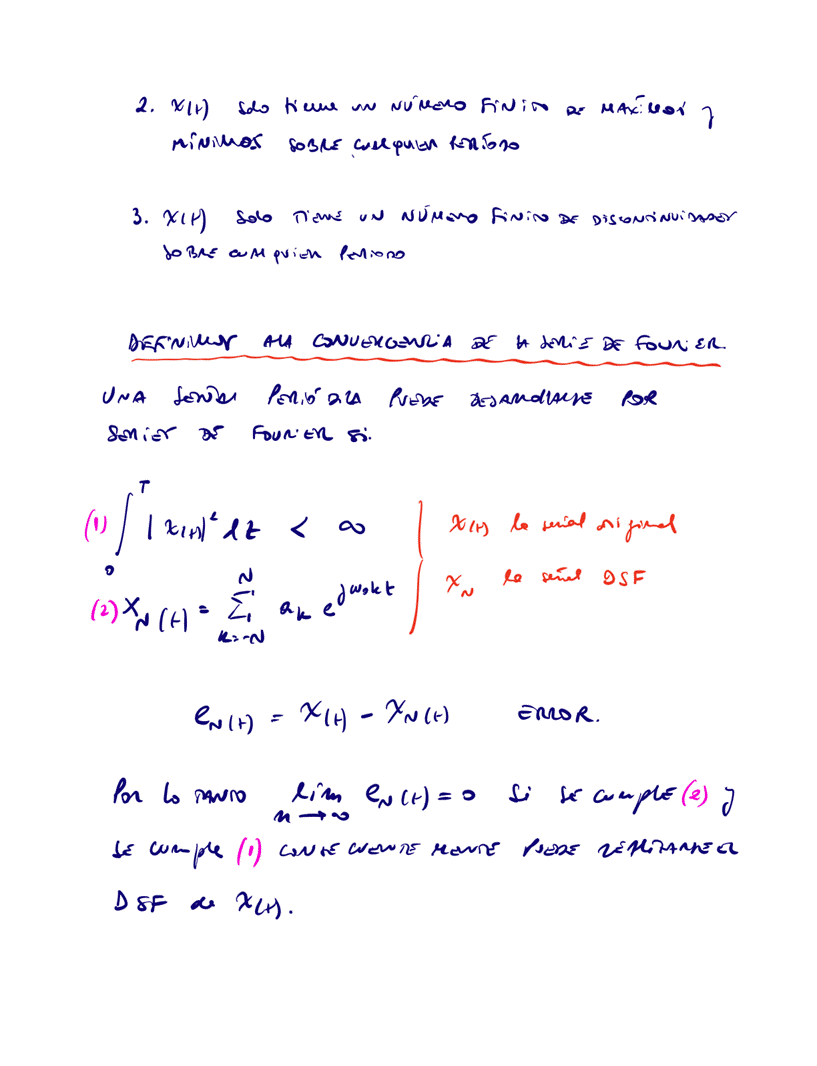 2. x(t) solo tiene un NÚMERO FINITO DE MÁXIMOS y
MÍNIMOS SOBRE CUALQUIER PERÍODO
3. x(t) SOLO TIENE UN NÚMERO FINITO DE DISCONTINUIDADES
SOBRE CUALQUIER PERIODO
DEFINIMOS A LA CONVERGENCIA DE LA SERIE DE FOURIER.
UNA SEÑAL PERIÓDICA PUEDE DESARROLLARSE POR
SERIES DE FOURIER SI.
(1) ∫₀ᵀ |x(t)|² dt < ∞
x(t) la señal original
(2) x_N(t) = Σ_{k=-N}^{N} a_k e^{jω₀kt}
x_N la señal DSF
e_N(t) = x(t) - x_N(t) ERROR.
Por lo TANTO lím_{n→∞} e_N(t) = 0 Si SE CUMPLE (2) y
SE cumple (1) CONSECUENTEMENTE PUEDE REALIZARSE EL
DSF de x(t).